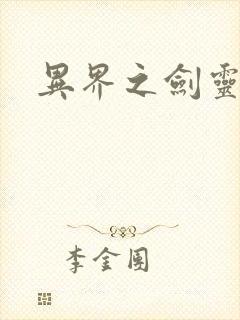 異界之劍靈
李金團